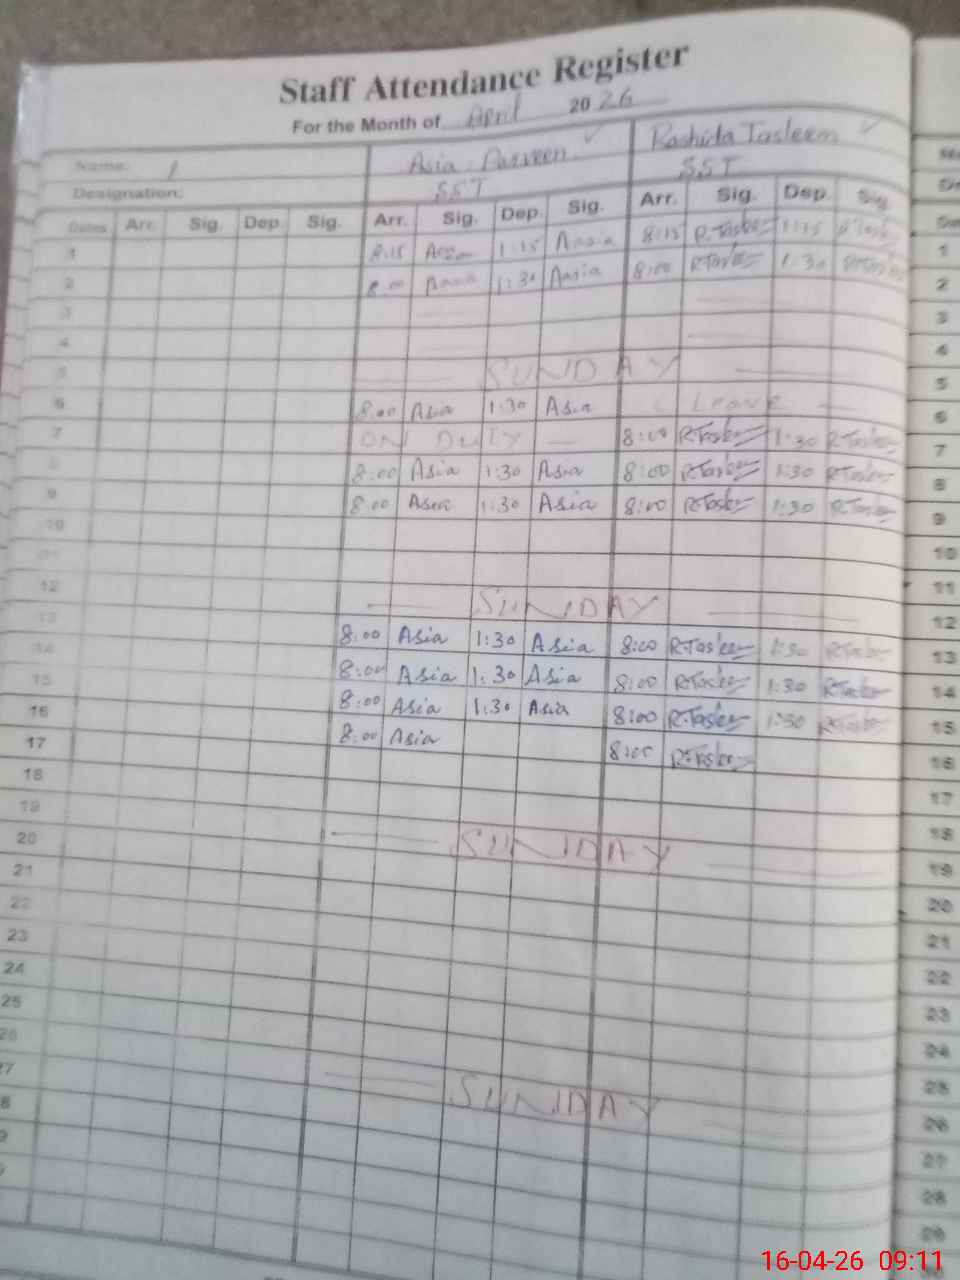 Staff Attendance Register
For the Month of April 2026
Name: Asia Parveen Rashida Tasleem
Designation: SST SST
Dates Arr. Sig. Dep. Sig. Arr. Sig. Dep. Sig. Arr. Sig. Dep. Sig.
1 8:15 Aasia 1:15 Aasia 8:15 R.Taslee 1:15 R.Taslee 1
2 8:00 Aasia 1:30 Aasia 8:00 R.Taslee 1:30 R.Taslee 2
3 3
4 4
5 SUNDAY 5
6 8:00 Asia 1:30 Asia Leave 6
7 ON DUTY 8:00 R.Taslee 1:30 R.Taslee 7
8 8:00 Asia 1:30 Asia 8:00 R.Taslee 1:30 R.Taslee 8
9 8:00 Asia 1:30 Asia 8:00 R.Taslee 1:30 R.Taslee 9
10 10
11 11
12 SUNDAY 12
13 8:00 Asia 1:30 Asia 8:00 R.Taslee 1:30 R.Taslee 13
14 8:00 Asia 1:30 Asia 8:00 R.Taslee 1:30 R.Taslee 14
15 8:00 Asia 1:30 Asia 8:00 R.Taslee 1:30 R.Taslee 15
16 8:00 Asia 8:00 R.Taslee 16
17 17
18 18
19 SUNDAY 19
20 20
21 21
22 22
23 23
24 24
25 25
26 SUNDAY 26
27 27
28
29
16-04-26 09:11